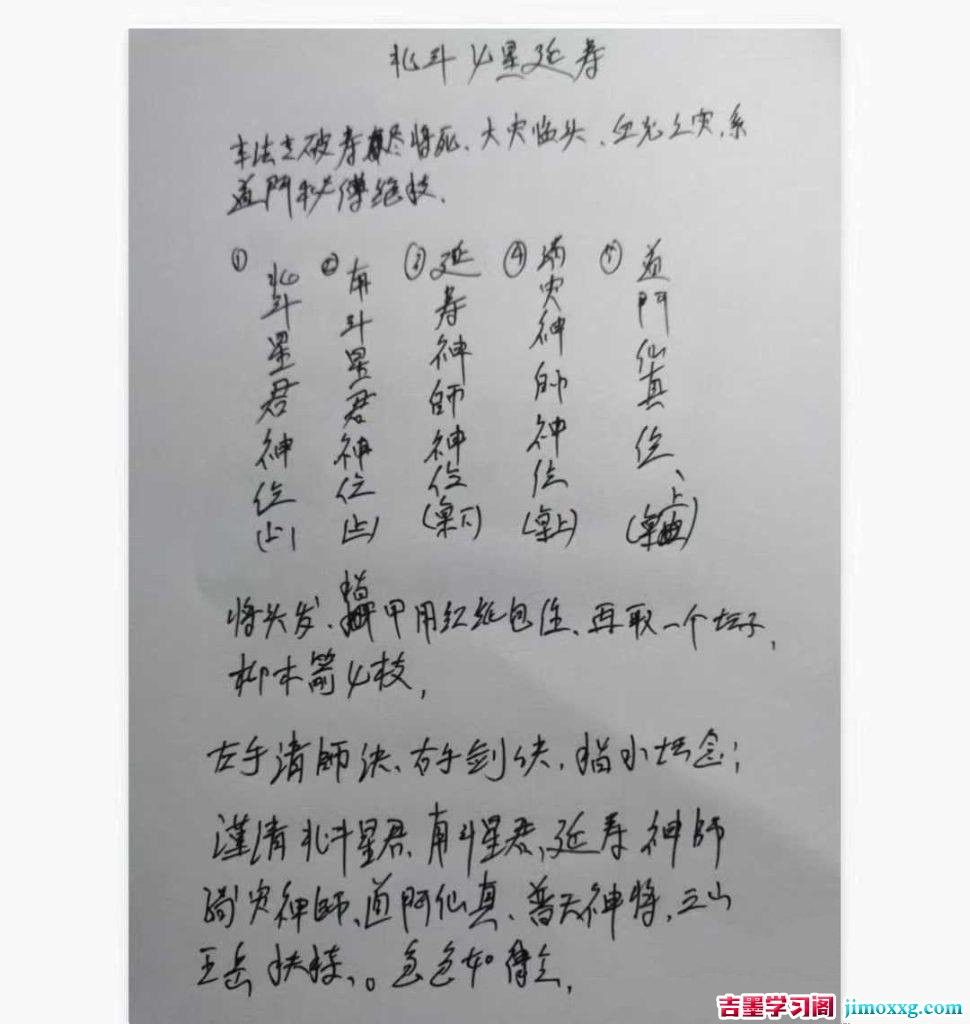 北斗七星延寿
本法专破寿尽将死、大灾临头、血光之灾,系
道門秘傳绝技.
① 北斗星君神位(上)
② 南斗星君神位(上)
③ 延寿神師神位(桌下)
④ 消灾神師神位(桌上)
⑤ 道門仙真位、(桌上)
将头发、指甲用红纸包住、再取一个坛子,
柳木箭七枝,
左手请師决、右手剑决,指水坛念;
谨请北斗星君、南斗星君、延寿神師
消灾神師、道門仙真、普天神将,三山
五岳扶持、。急急如律令,
吉墨学习阁 jimoxxg.com